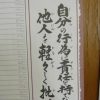 自分の行為に責任を持て
他人を軽々しく批